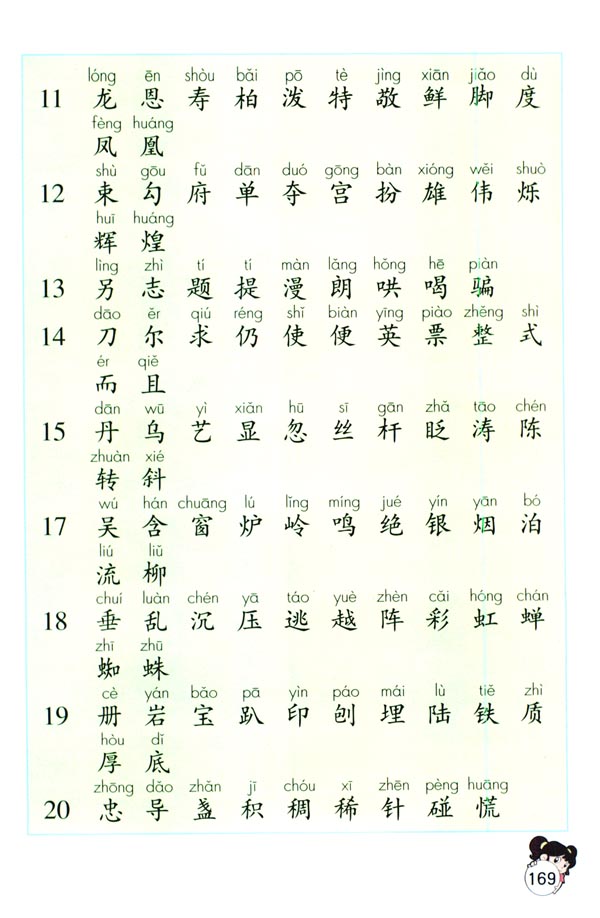 lóng ēn shòu bǎi pō tè jìng xiān jiǎo dù
11 龙 恩 寿 柏 泼 特 敬 鲜 脚 度
fèng huáng
凤 凰
shù gōu fǔ dān duó gōng bàn xióng wěi shuò
12 束 勾 府 单 夺 宫 扮 雄 伟 烁
huī huáng
辉 煌
lìng zhì tí tí màn lǎng hǒng hē piàn
13 另 志 题 提 漫 朗 哄 喝 骗
dāo ěr qiú réng shǐ biàn yīng piào zhěng shì
14 刀 尔 求 仍 使 便 英 票 整 式
ér qiě
而 且
dān wū yì xiǎn hū sī gān zhǎ tāo chén
15 丹 乌 艺 显 忽 丝 杆 眨 涛 陈
zhuàn xié
转 斜
wú hán chuāng lú lǐng míng jué yín yān bó
17 吴 含 窗 炉 岭 鸣 绝 银 烟 泊
liú liǔ
流 柳
chuí luàn chén yā táo yuè zhèn cǎi hóng chán
18 垂 乱 沉 压 逃 越 阵 彩 虹 蝉
zhī zhū
蜘 蛛
cè yán bǎo pā yìn páo mái lù tiě zhì
19 册 岩 宝 趴 印 刨 埋 陆 铁 质
hòu dǐ
厚 底
zhōng dǎo zhǎn jī chóu xī zhēn pèng huāng
20 忠 导 盏 积 稠 稀 针 碰 慌
169